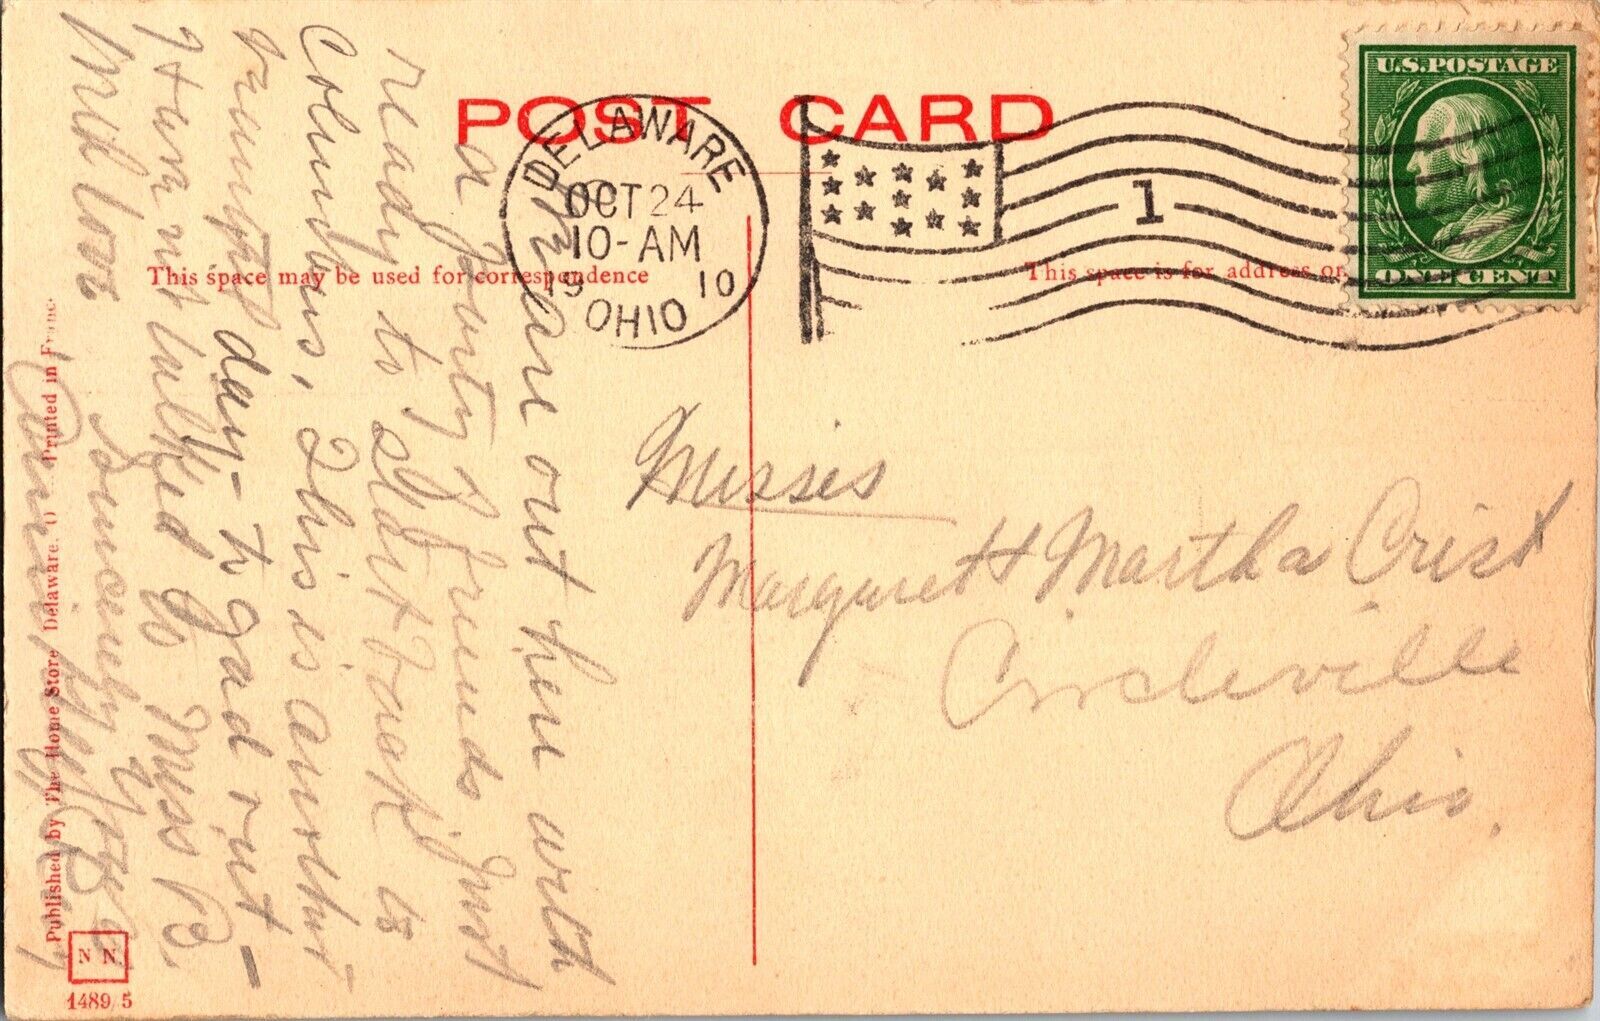 POST CARD
DELAWARE
OCT 24
10-AM
1910
OHIO
1
U.S. POSTAGE
ONE CENT
This space may be used for correspondence
This space is for address on
We are out here with
a party of friends just
ready to start back to
Columbus, This is another
beautiful day - to gad out -
Have not talked to Miss B.
With love
Sincerely yours
Misses
Margaret & Martha Crist
Circleville
Ohio.
Published by The Home Store Delaware. O Printed in France
N N
1489/5